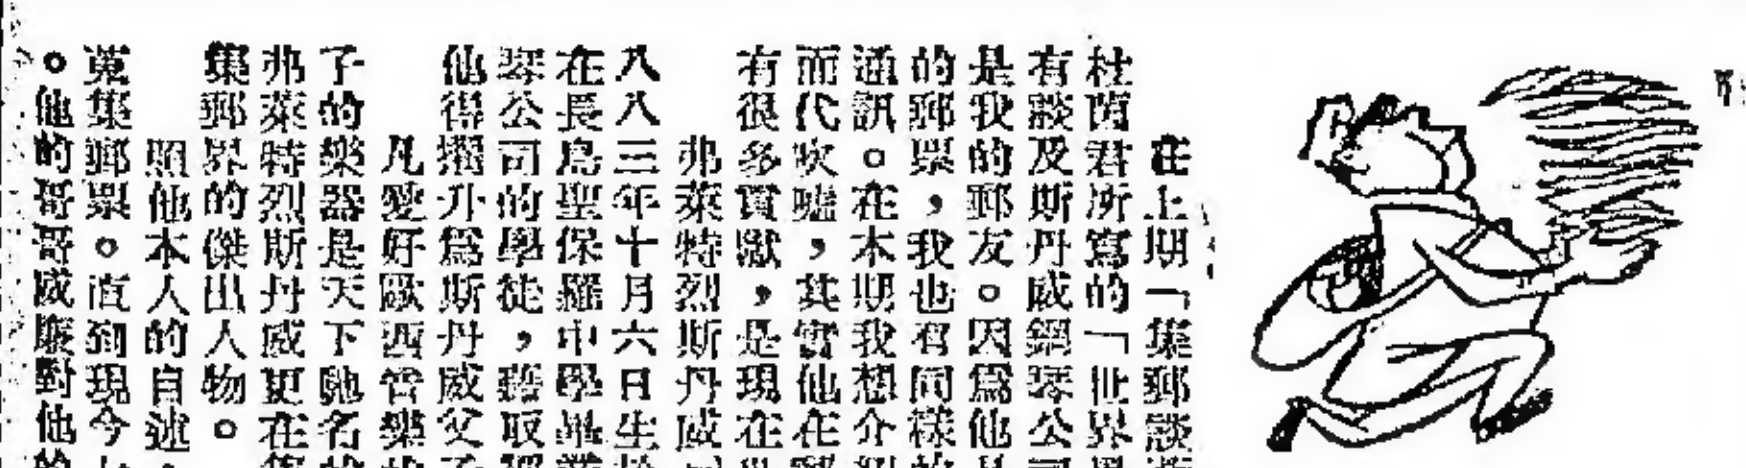 在上期「集郵談
杜蘭君所寫的「世界
有談及斯丹威鋼琴公司
是我的郵友。因爲他
的郵票,我也有同樣的
通訊。在本期我想介紹
而代吹噓,其實他在郵
有很多貢獻,是現在
弗萊特烈斯丹威
八八三年十月六日生於
在長島聖保羅中學畢業
琴公司的學徒,藝取
他得擢升爲斯丹威父子
凡愛好歐西音樂
子的樂器是天下馳名的
弗萊特烈斯丹威更在集
集郵界的傑出人物。
照他本人的自述
蒐集郵票。直到現今
。他的哥哥威廉對他的